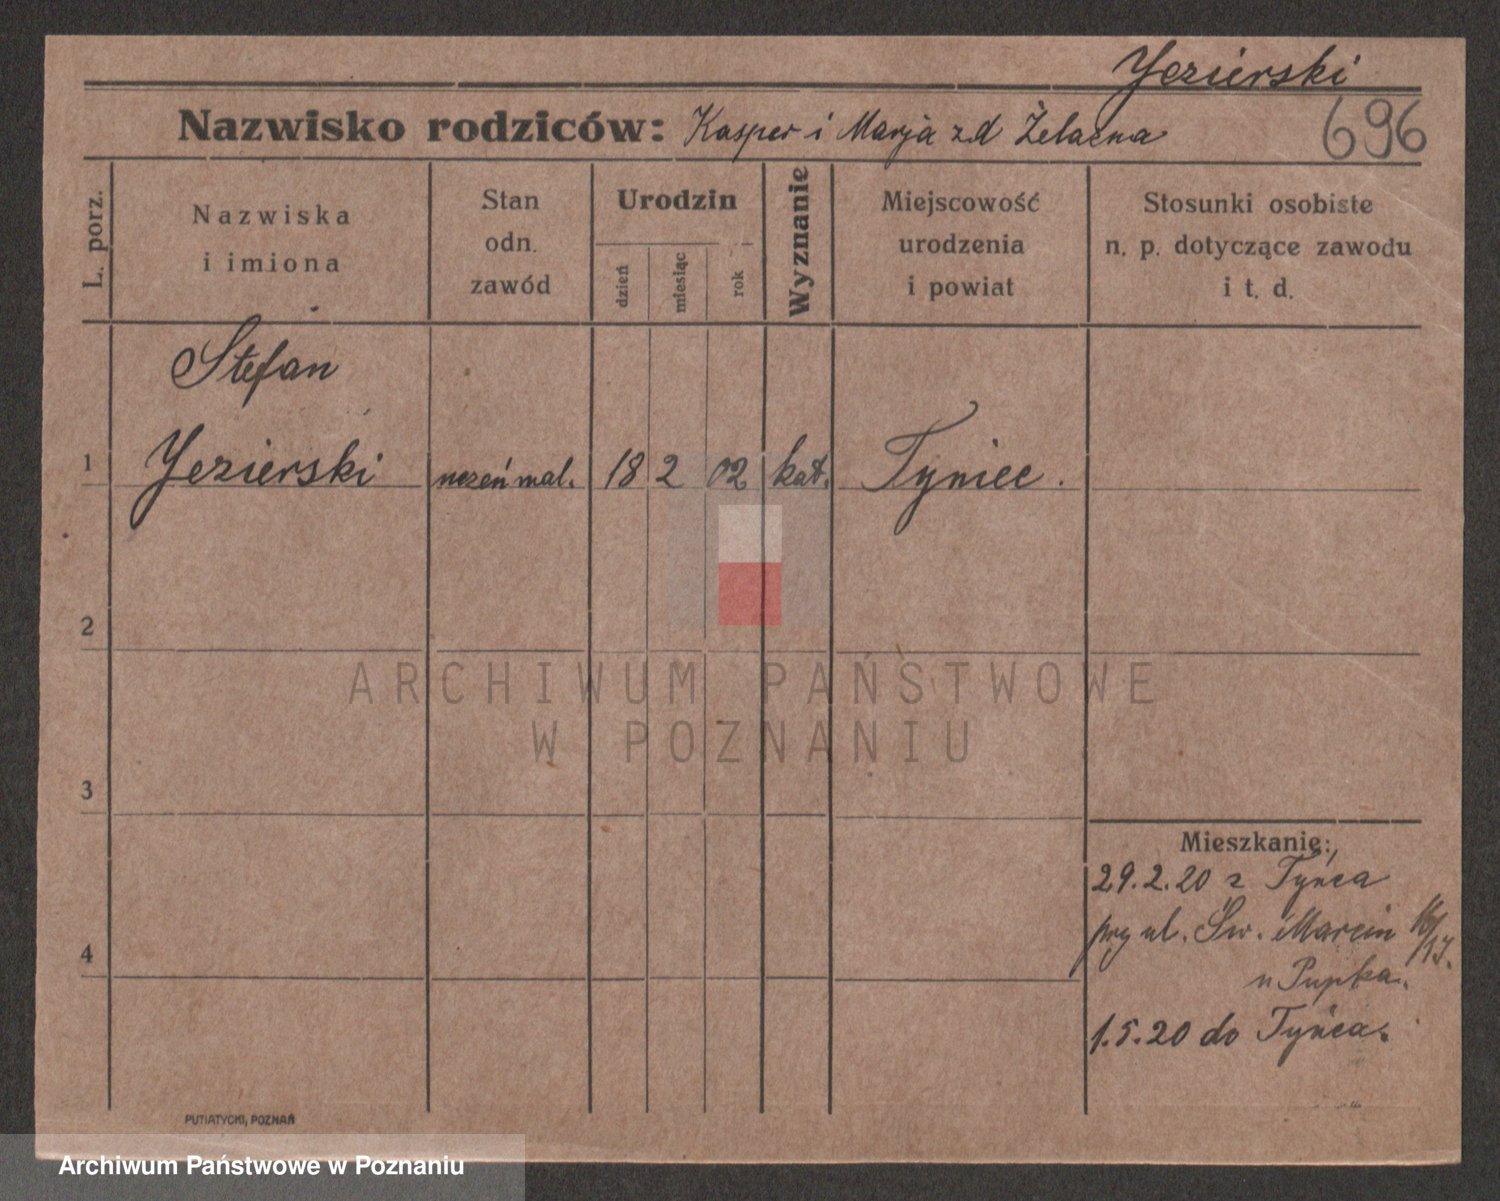 Yezierski
Nazwisko rodziców: Kasper i Marja zd Żelazna
696
L. porz.
Nazwiska
i imiona
Stan
odn.
zawód
Urodzin
dzień
miesiąc
rok
Wyznanie
Miejscowość
urodzenia
i powiat
Stosunki osobiste
n. p. dotyczące zawodu
i t. d.
Stefan
1 Yezierski uczeń mal. 18 2 02 kat. Tyniec.
2
ARCHIWUM PAŃSTWOWE
W POZNANIU
3
Mieszkanie:
29.2.20 z Tyńca
przy ul. Św. Marcin 16/17.
u Pupka.
4
1.5.20 do Tyńca.
PUTIATYCKI, POZNAŃ
Archiwum Państwowe w Poznaniu